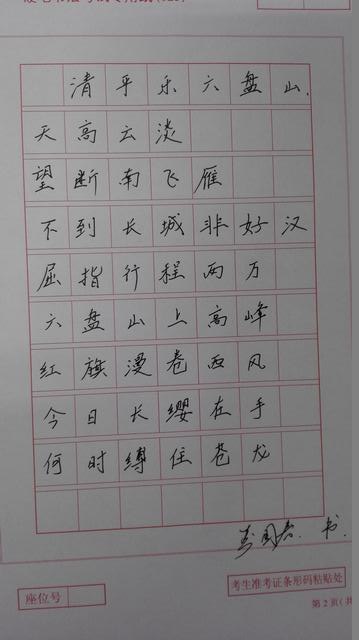 清平乐六盘山.
天高云淡
望断南飞雁
不到长城非好汉
屈指行程两万
六盘山上高峰
红旗漫卷西风
今日长缨在手
何时缚住苍龙
书.
考生准考证条形码粘贴处
座位号
第2页(共